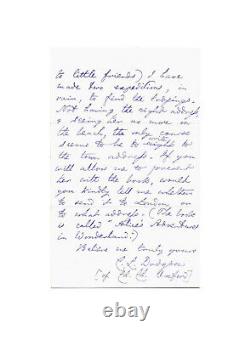 to little friends) I have
made two expeditions, in
vain, to find the lodgings.
Not having the right address,
& seeing her no more in
the beach, the only course
seems to be writing to
the town address. If you
will allow me to present
her with the book, would
you kindly tell me whether
to send it to London, or
to what address. (The book
is called "Alice's Adventures
in Wonderland.")
Believe me truly yours
C. L. Dodgson
[of Ch. Ch. Oxford]
ebay